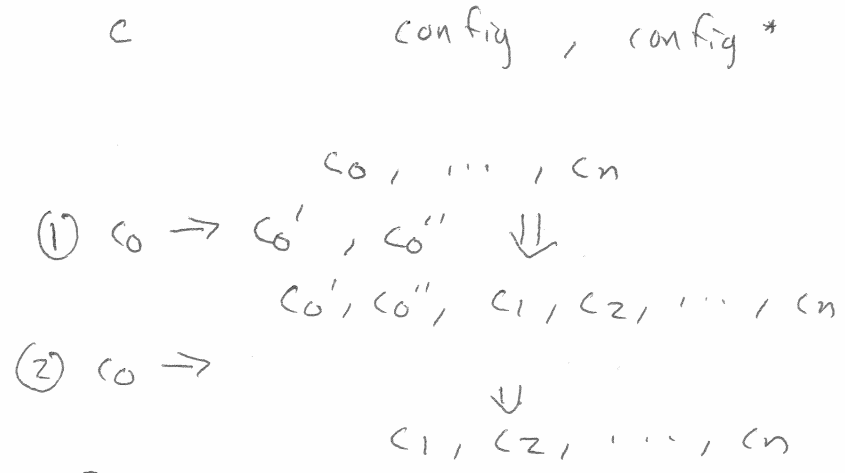 c config , config *
c0 , ... , cn
① c0 → c0' , c0'' ⇓
c0' , c0'' , c1 , c2 , ... , cn
② c0 →
⇓
c1 , c2 , ... , cn